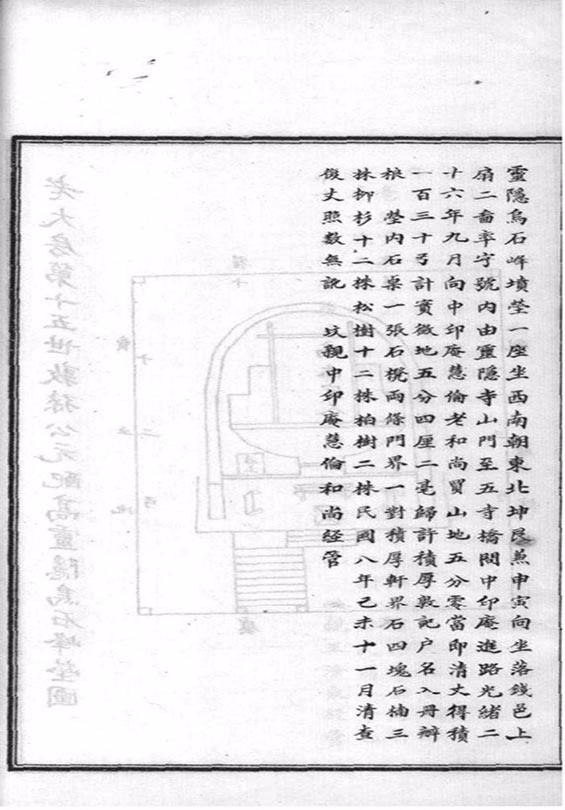 靈隱烏石峰墳塋一座坐西南朝東北坤艮兼申寅向坐落錢邑上
扇二畜率字號內由靈隱寺山門至五寺橋閣中印庵進路光緒二
十六年九月向中印庵慧倫老和尚買山地五分零當即清丈得積
一百三十弓計實徵地五分四厘二毫歸許積厚敦記户名入冊辦
粮　塋内石桌一張石櫈兩條門界一對積厚軒界石四塊石楠三
株柳杉十二株松樹十二株柏樹二株民國八年己未十一月清查
復丈照數無訛　坟親中印庵慧倫和尚経管